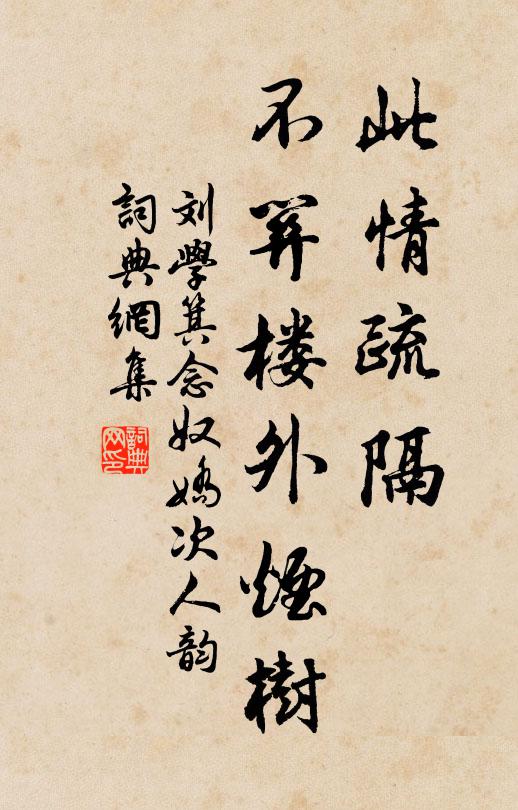 此情疏隔
不算楼外烟樹
刘學箕念奴嬌次人韵
詞典網集
詞典网印